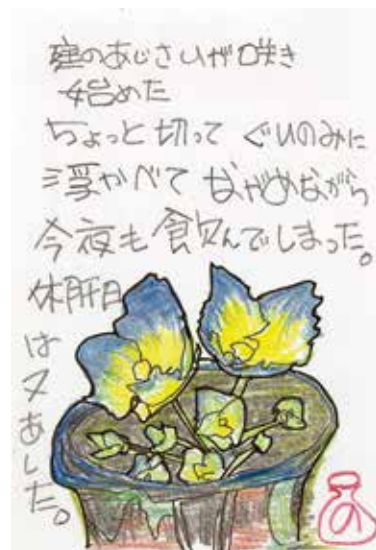 庭のあじさいが咲き
始めた
ちょっと切って ぐいのみに
浮かべて ながめながら
今夜も飲んでしまった。
休肝日
は又あした。
の